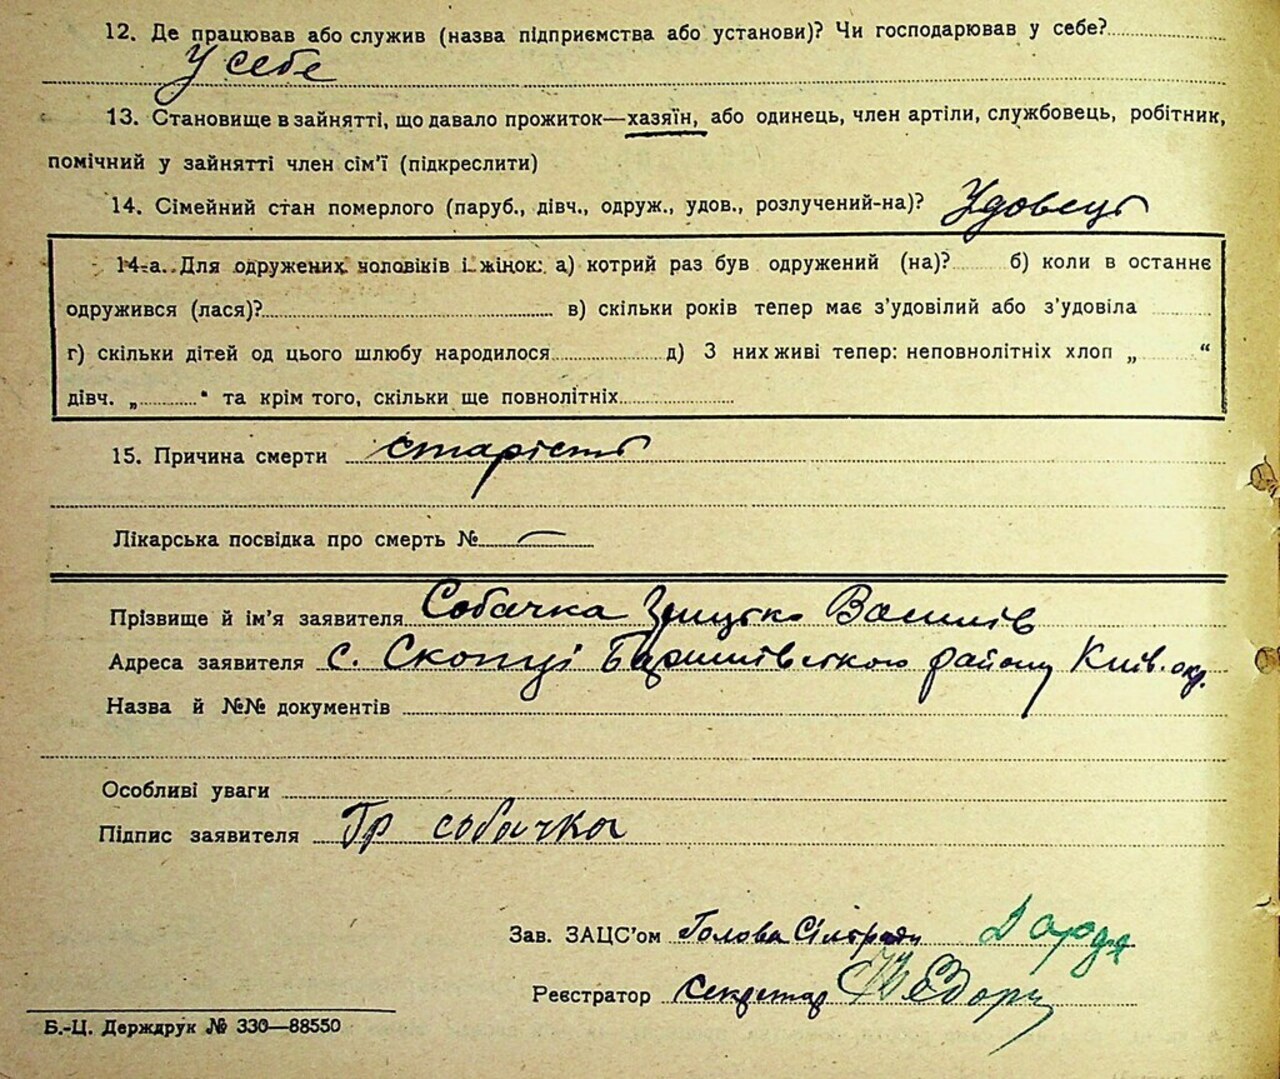 12. Де працював або служив (назва підприємства або установи)? Чи господарював у себе?
У себе
13. Становище в зайнятті, що давало прожиток—хазяїн, або одинець, член артіли, службовець, робітник,
помічний у зайнятті член сім’ї (підкреслити)
14. Сімейний стан померлого (паруб., дівч., одруж., удов., розлучений-на)? Удовець
14-а. Для одружених чоловіків і жінок: а) котрий раз був одружений (на)? б) коли в останнє
одружився (лася)? в) скільки років тепер має з’удовілий або з’удовіла
г) скільки дітей од цього шлюбу народилося д) З них живі тепер: неповнолітніх хлоп „ “
дівч. „ “ та крім того, скільки ще повнолітніх
15. Причина смерти старість
Лікарська посвідка про смерть № —
Прізвище й ім’я заявителя Собачка Грицько Василів
Адреса заявителя с. Скопці Баришівського району Київ. окр.
Назва й №№ документів
Особливі уваги
Підпис заявителя Гр собачка
Зав. ЗАЦС’ом Голова Сілкради
Реєстратор секретар
Б.-Ц. Держдрук № 330—88550